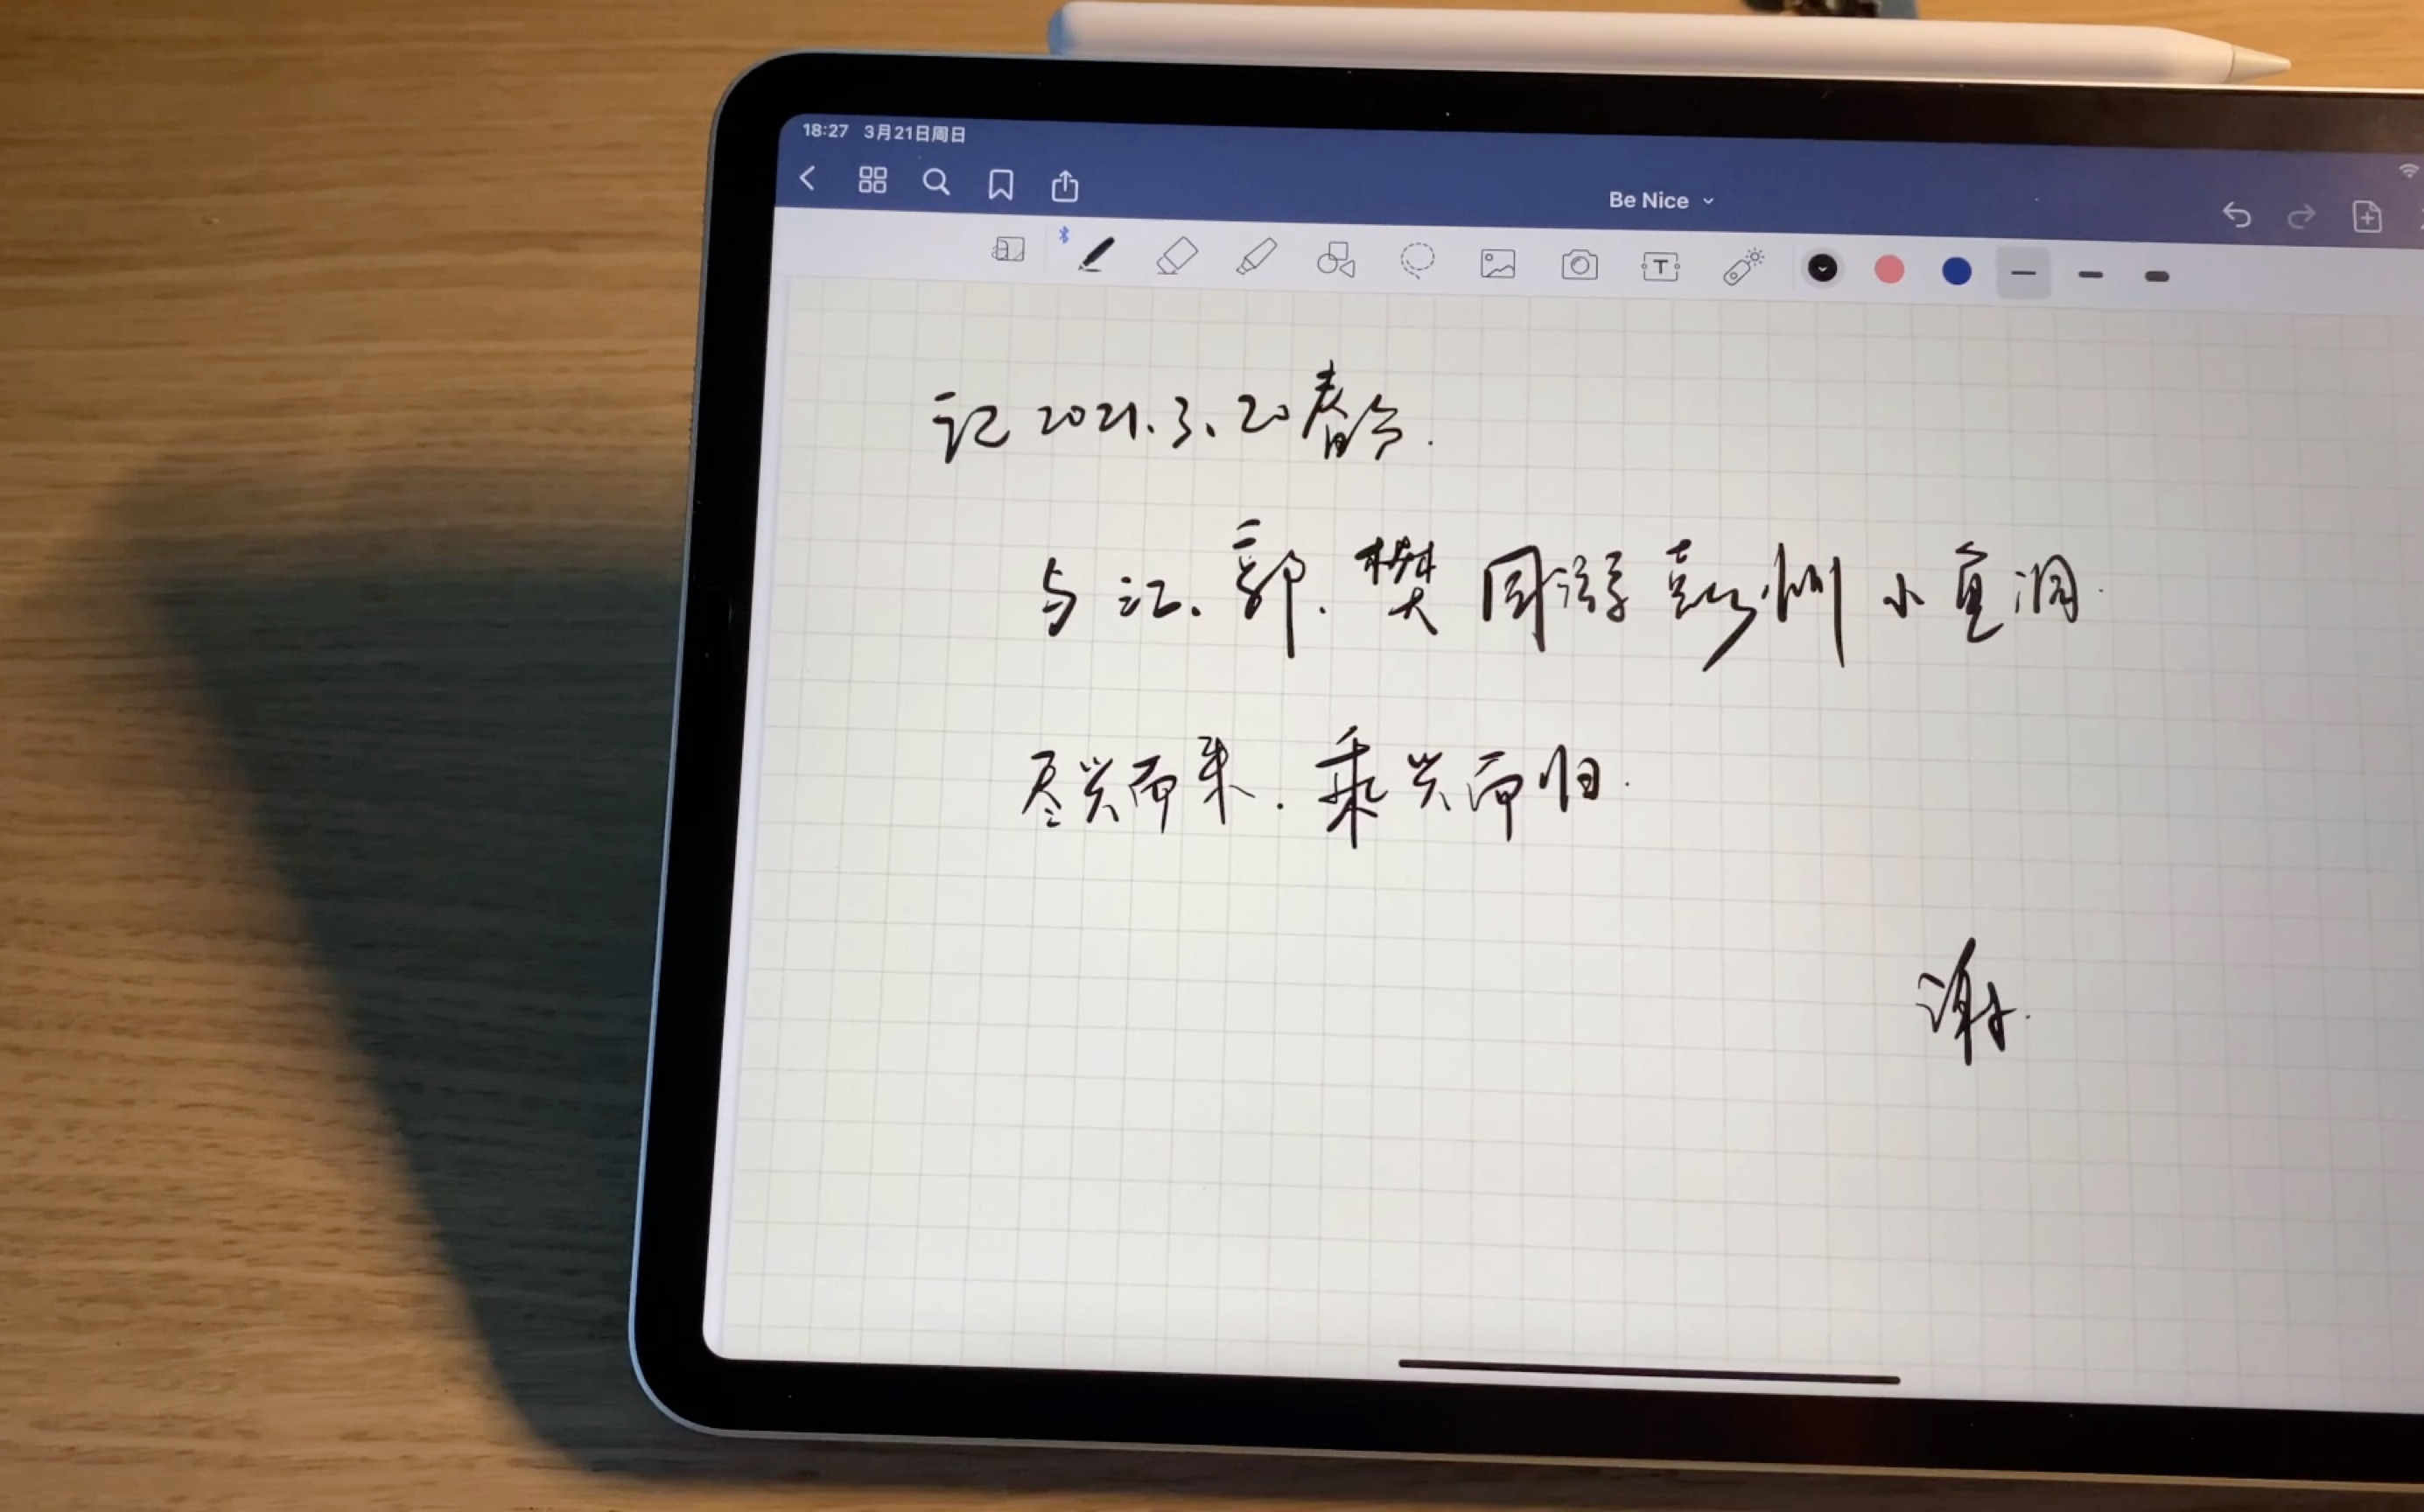 18:27 3月21日周日
Be Nice
记2021.3.20春分.
与江、郭.樊同游彭州小鱼洞.
尽兴而来.乘兴而归.
谢.